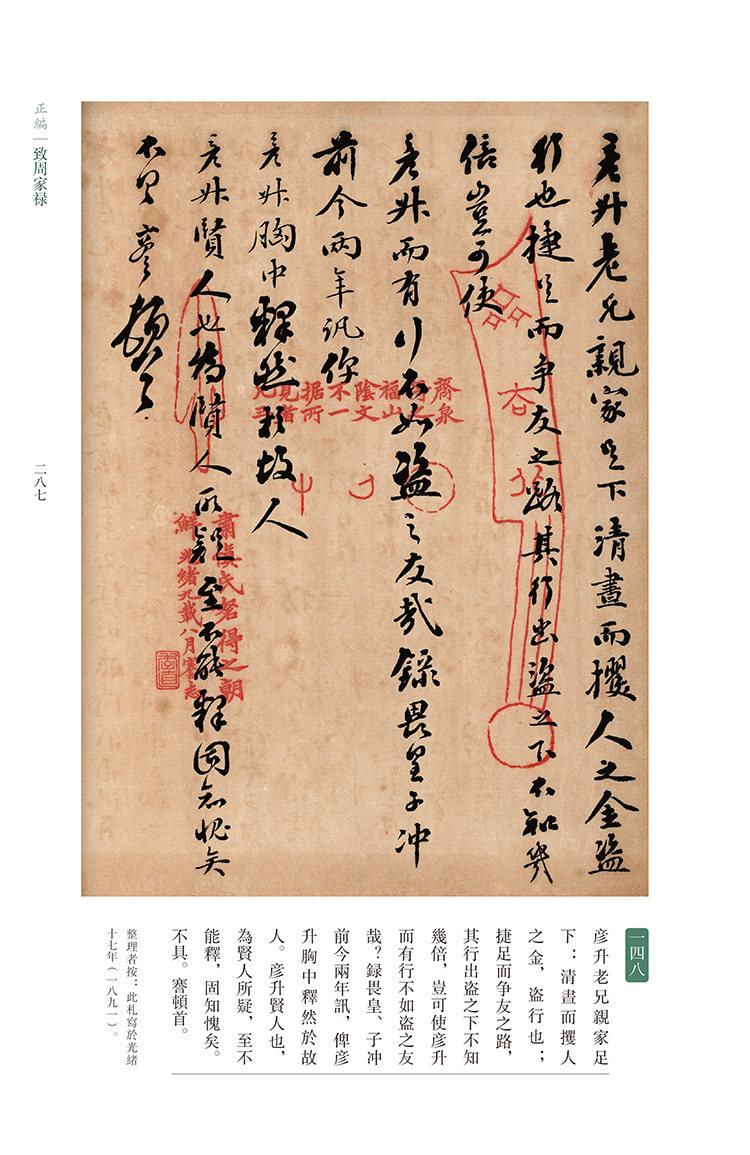 彦升老兄親家足下清晝而攫人之金盜
行也捷足而争友之路其行出盜之下不知幾
倍豈可使
彦升而有行不如盜之友哉錄畏皇子冲
前今兩年訊俾
彦升胸中釋然於故人
彦升賢人也為賢人所疑至不能釋固知愧矣
不具 謇頓首
齋泉
福山
陰文
不一
据所
見者
凡三
得之朝
鮮光緒九載八月謇志
一四八
彦升老兄親家足
下：清晝而攫人
之金，盜行也；
捷足而争友之路，
其行出盜之下不知
幾倍，豈可使彦升
而有行不如盜之友
哉？録畏皇、子冲
前今兩年訊，俾彦
升胸中釋然於故
人。彦升賢人也，
為賢人所疑，至不
能釋，固知愧矣。
不具。謇頓首。
整理者按：此札寫於光緒
十七年（一八九一）。
正編｜致周家禄
二八七